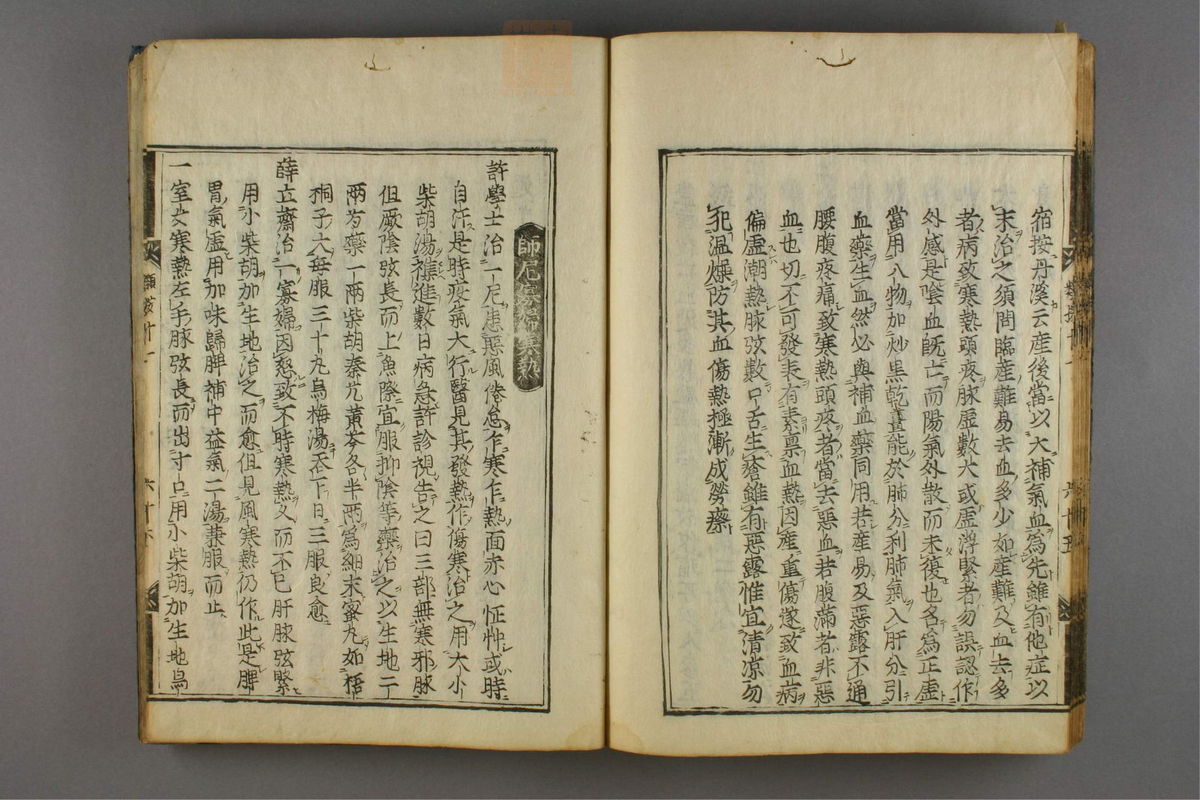 宿按丹溪云産後當以大補氣血為先雖有他症以
末治之須問臨産難易去血多少如産難及血去多
者病致寒熱頭疼脉虚數大或虚浮緊者勿誤認作
外感是陰血既亡而陽氣外散而未復也名為正虚
當用八物加炒黒乾薑能於肺分利肺氣入肝分引
血藥生血然必與補血藥同用若産易及惡露不通
腰腹疼痛致寒熱頭疼者當去惡血若腹滿者非惡
血也切不可發表有素禀血熱因産重傷遂致血病
偏虚潮熱脉弦數口舌生瘡雖有惡露惟宜清凉勿
犯温燥防其血傷熱極漸成勞瘵
師尼寡婦寒熱
許學士治一尼患惡風倦怠乍寒乍熱面赤心怔忡或時
自汗是時疫氣大行醫見其發熱作傷寒治之用大小
柴胡湯襍進數日病急許診視告之曰三部無寒邪脉
但厥陰弦長而上魚際宜服抑陰等藥治之以生地二
兩芍藥一兩柴胡秦艽黄芩各半兩為細末蜜丸如梧
桐子大每服三十丸烏梅湯吞下日三服良愈
薛立齋治一寡婦因怒致不時寒熱久而不已肝脉弦緊
用小柴胡加生地治之而愈但見風寒熱仍作此是脾
胃氣虚用加味歸脾補中益氣二湯兼服而止
一室女寒熱左手脉弦長而出寸口用小柴胡加生地烏
六十五
六十六